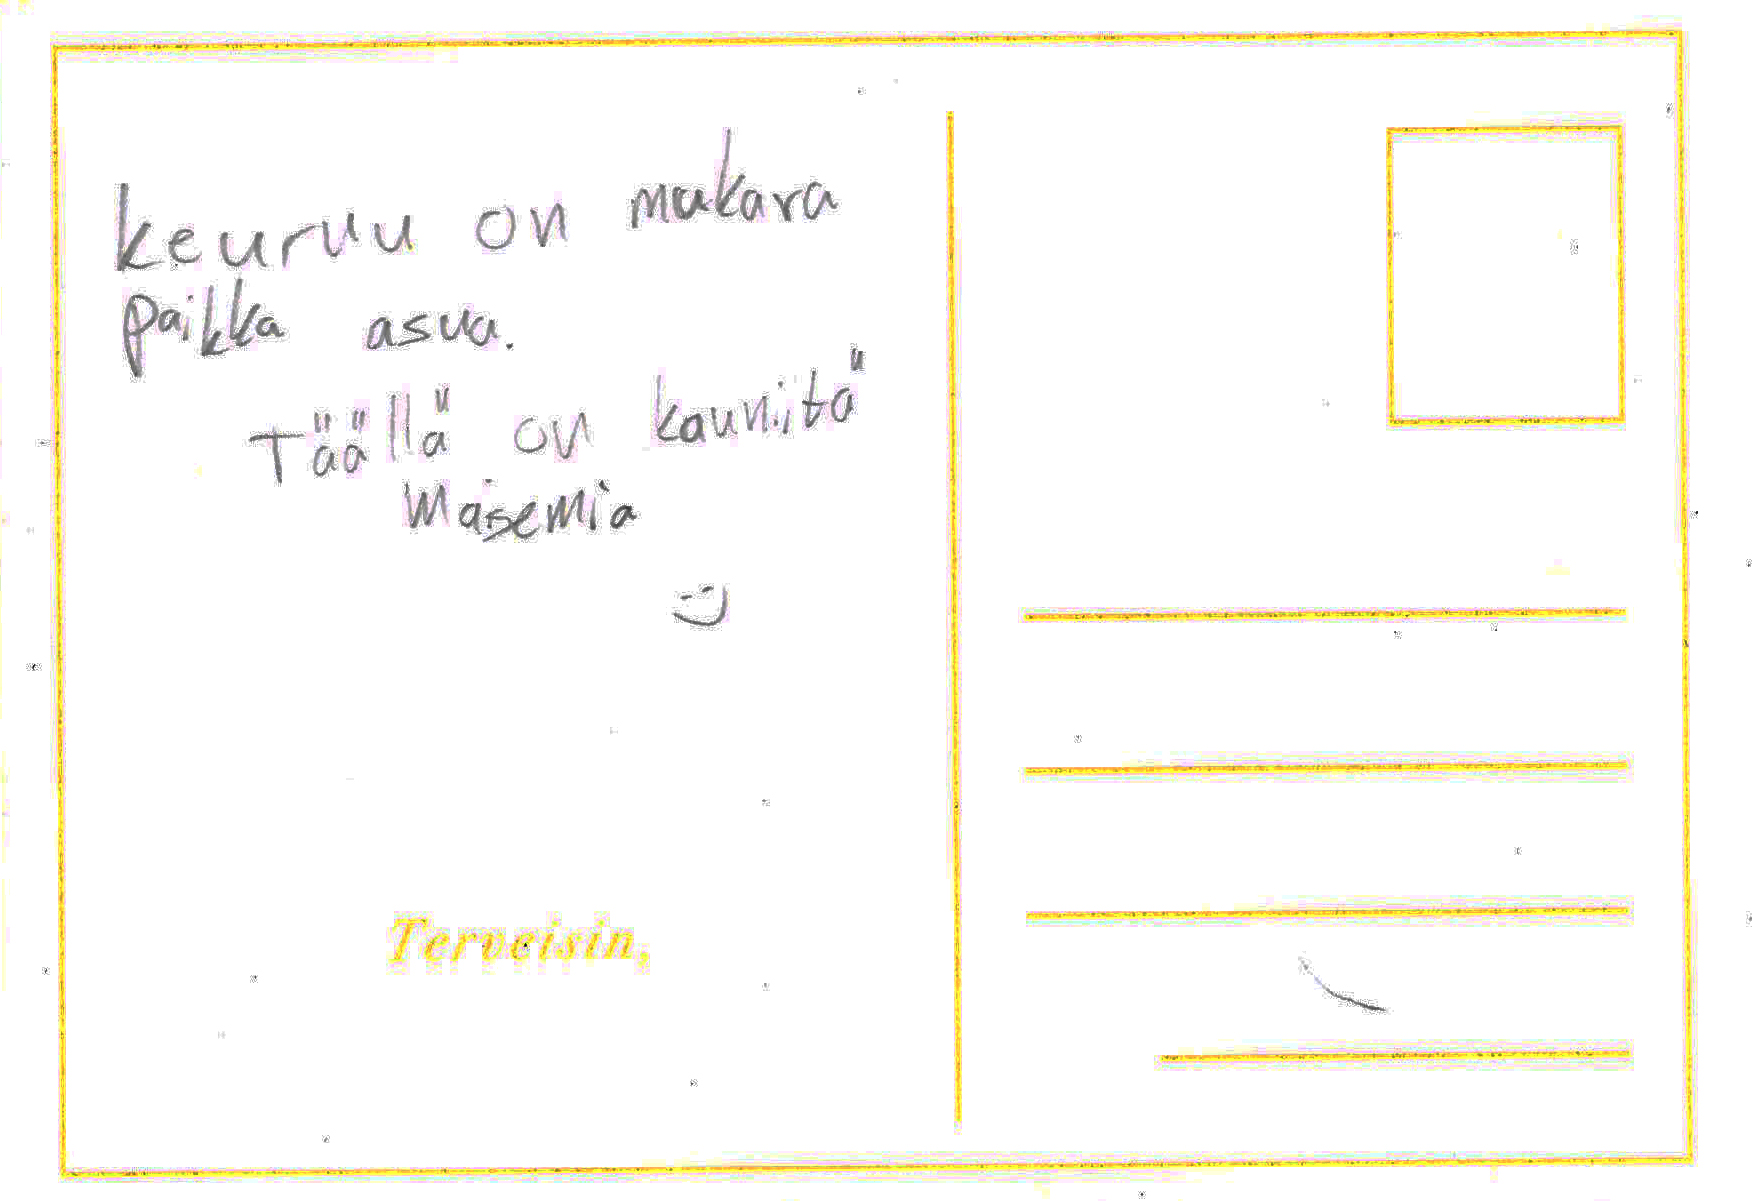 keuruu on mukava
paikka asua.
Täällä on kauniitä
Maisemia
Terveisin,